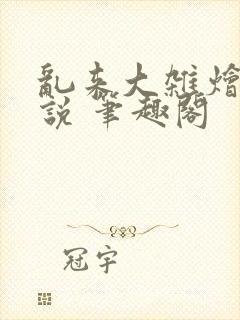 亂来大雜燴
說 筆趣閣
冠宇